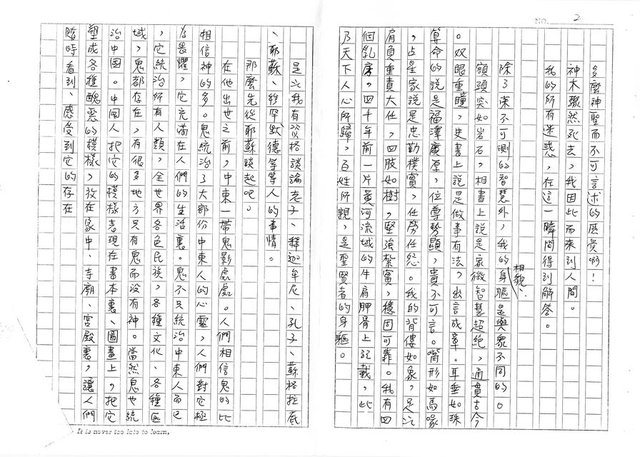 NO. 2
多麼神聖而不可言述的感受啊！
神木雖然死去，我因此而來到人間。
我的所有迷惑，在這一瞬間得到解答。
除了深不可測的智慧外，我的相貌、身軀是與眾不同的。
額頭突如岩石，相書上說是象徵智慧超絕，通貫古今
。奴眼重瞳，史書上說是做事有法，出言成章。耳垂如珠
，算命的說是福澤廣厚，位尊勢顯，貴不可言。嘴形如馬喙
，占星家說是忠勤樸實，任勞任怨。我的背僂如象，足以
肩負重責大任，四肢如樹，堅強紮實，穩固可靠。我有四
個乳房，四十年前一片黃河流域的牛肩胛骨上記載，此
乃天下人心所歸，百姓所親，是聖賢者的身軀。
是以我有資格談論老子、釋迦牟尼、孔子、蘇格拉底
、耶穌、穆罕默德等等人的事情。
那麼先從耶穌談起吧。
在他出世之前，中東一帶鬼影處處。人們相信鬼的比
相信神的多。鬼統治了大部份中東人的心靈，人們對它極
為畏懼，它充滿在人們的生活裏。鬼不只統治中東人而已
，它統治所有人類，全世界各色民族，各種文化、各種區
域，鬼都存在，有很多地方只有鬼而沒有神。當然鬼也統
治中國。中國人把它的模樣表現在書本裏、圖畫上，把它
塑成各種醜惡的模樣，放在家中、寺廟、宮殿裏，讓人們
隨時看到、感受到它的存在
It is never too late to learn.